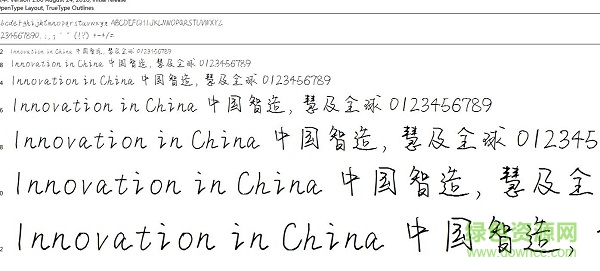 Version 2.00 August 24, 2016, initial release
OpenType Layout, TrueType Outlines
abcdefghijklmnopqrstuvwxyz ABCDEFGHIJKL
1234567890.:,; ' " (!?) +-*/=
Innovation in China 中国智造，慧及全球 0123456789
Innovation in China 中国智造，慧及全球 0123456789
Innovation in China 中国智造，慧及全球 0123456789
Innovation in China 中国智造，慧及全球 0123456789
Innovation in China 中国智造，慧及全球 012345
Innovation in China 中国智造，慧及全
Innovation in China 中国智造，
绿色资源网
www.downcc.com